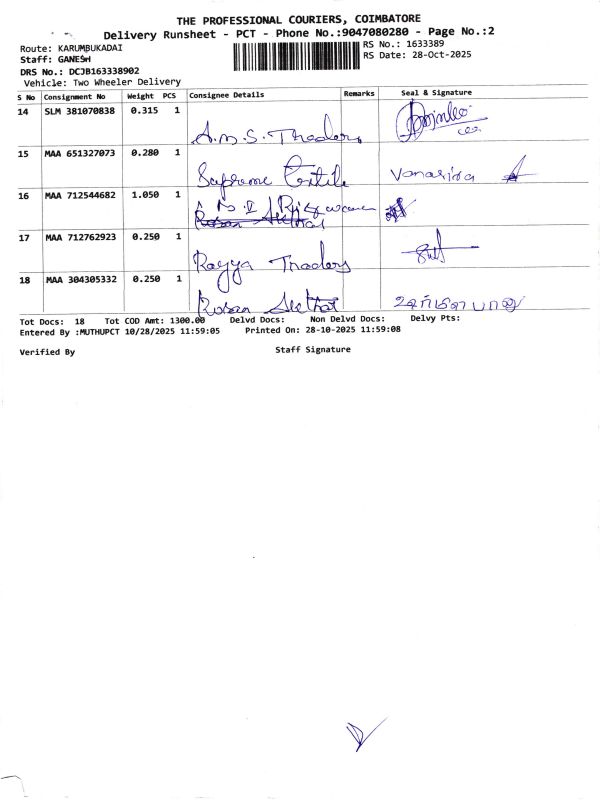 THE PROFESSIONAL COURIERS, COIMBATORE
Delivery Runsheet - PCT - Phone No.:9047080280 - Page No.:2
Route: KARUMBUKADAI
RS No.: 1633389
Staff: GANESH
RS Date: 28-Oct-2025
DRS No.: DCJB163338902
Vehicle: Two Wheeler Delivery
S No Consignment No Weight PCS Consignee Details Remarks Seal & Signature
14 SLM 381070838 0.315 1
A.M.S. Thaders
15 MAA 651327073 0.280 1
Supreme
16 MAA 712544682 1.050 1
17 MAA 712762923 0.250 1
Rayya Thaders
18 MAA 304305332 0.250 1
Rosan
Tot Docs: 18 Tot COD Amt: 1300.00 Delvd Docs: Non Delvd Docs: Delvy Pts:
Entered By :MUTHUPCT 10/28/2025 11:59:05 Printed On: 28-10-2025 11:59:08
Verified By Staff Signature